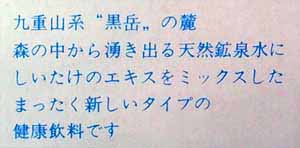 九重山系“黒岳„の麓
森の中から湧き出る天然鉱泉水に
しいたけのエキスをミックスした
まったく新しいタイプの
健康飲料です